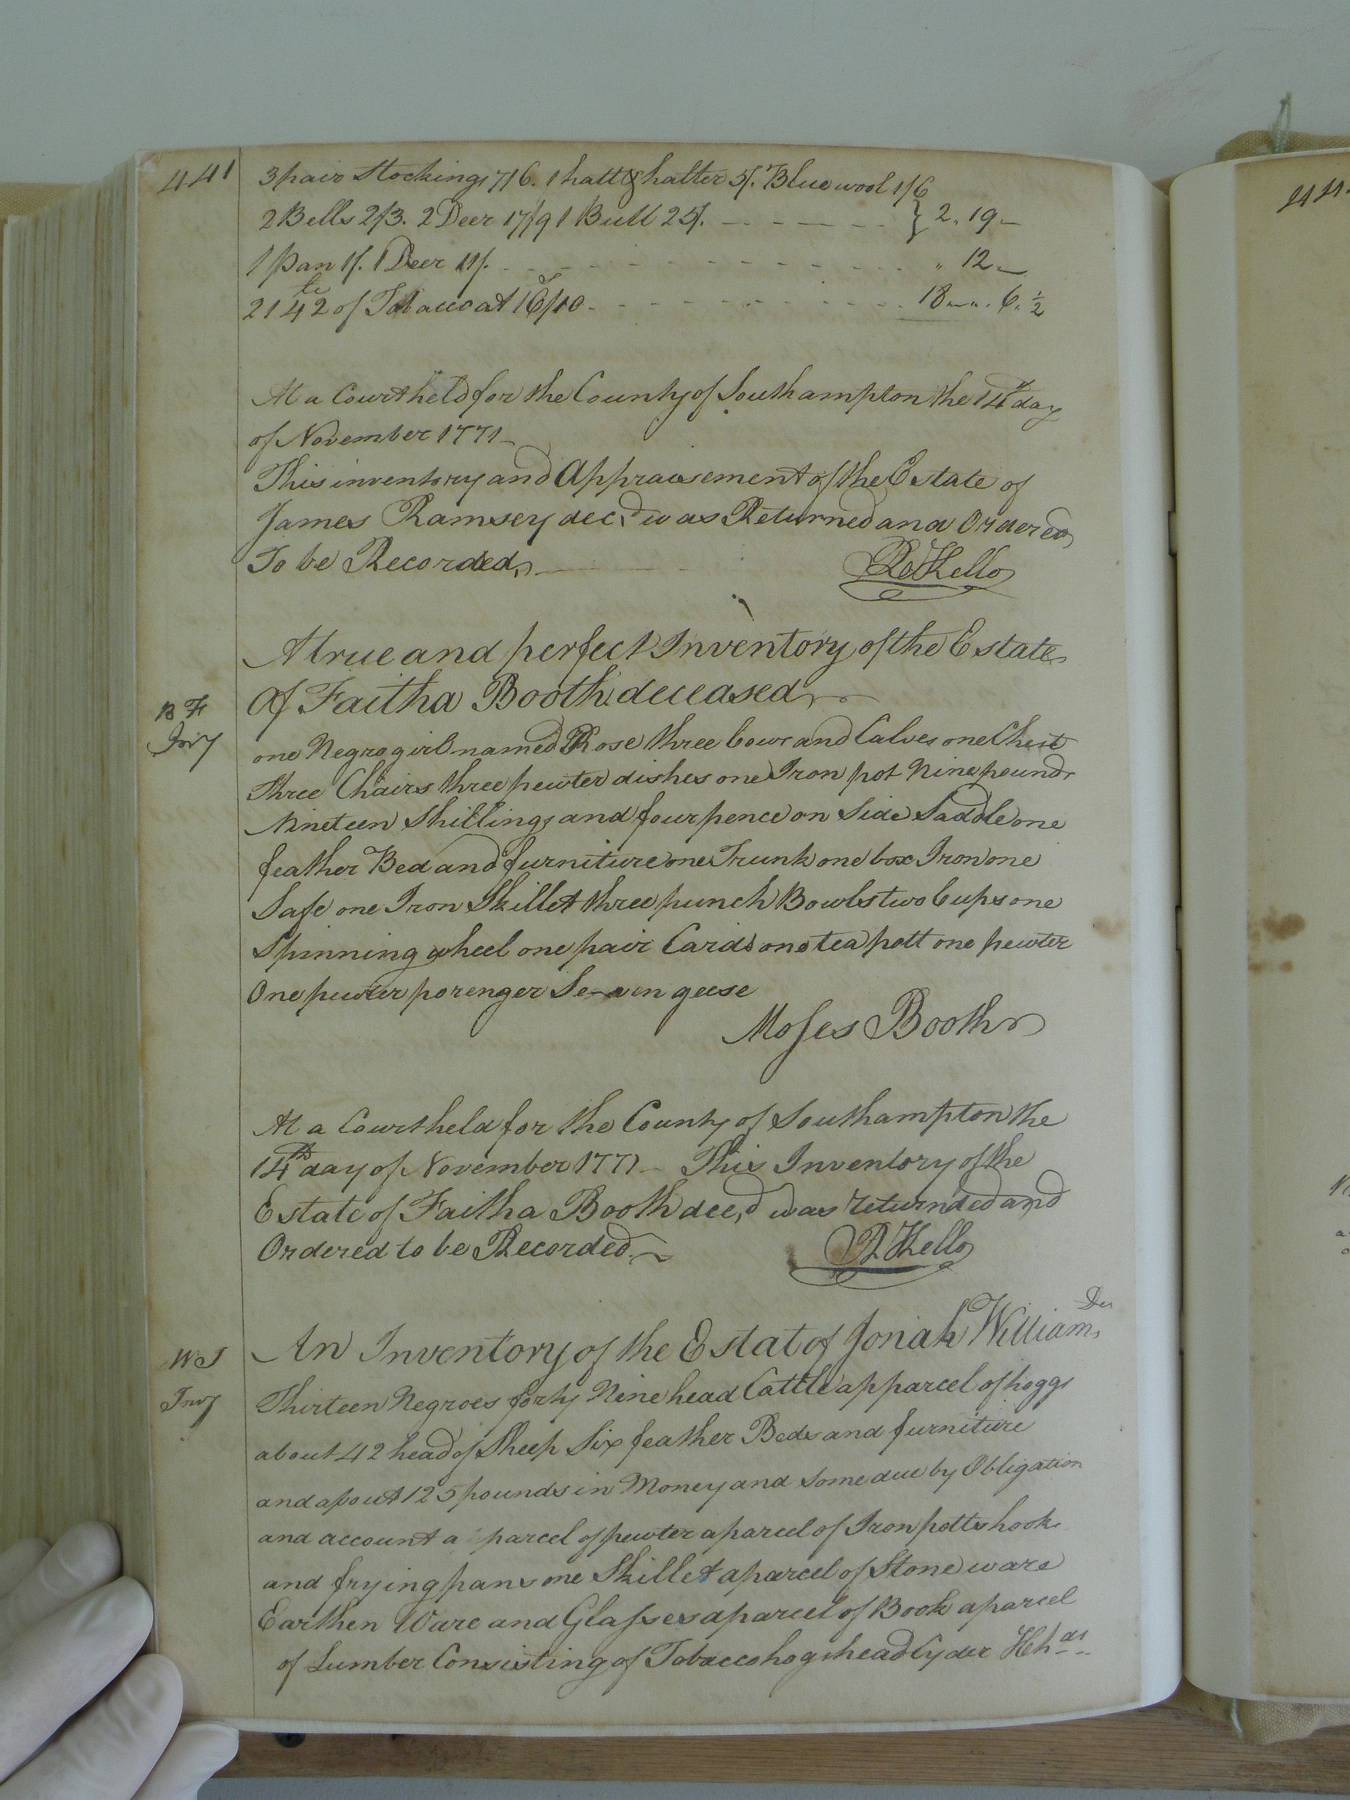 441
3 pair Stockings 7/6. 1 hatt & halter 5/. Blue wool 1/6
2 Bells 2/3. 2 Deer 17/9 1 Bull 25/. } 2. 19 -
1 Pan 1/. 1 Deer 11/. " 12 -
2142 lb of Tobacco at 16/10 18 - " . 6. ½
At a Court held for the County of Southampton the 14th day
of November 1771 -
This inventory and Appraisement of the Estate of
James Ramsey dec.d was Returned and Ordered
To be Recorded,
R Kello
A true and perfect Inventory of the Estate
Of Faitha Booth deceased
B F
Invy
one Negro girl named Rose three Cows and Calves one Chest
three Chairs three pewter dishes one Iron pot Nine pounds
Nineteen Shillings and four pence on Side Saddle one
feather Bed and furniture one Trunk one box Iron one
Safe one Iron Skillet three punch Bowls two Cups one
Spinning wheel one pair Cards one tea pott one pewter
One pewter porenger Seven geese
Moses Booth
At a Court held for the County of Southampton the
14th day of November 1771 - This Inventory of the
Estate of Faitha Booth dec,d was returnded and
Ordered to be Recorded.
R Kello
An Inventory of the Estat of Jonah Williams
W J
Invy
Thirteen Negroes forty Nine head Cattle apparcel of hoggs
about 42 head of Sheep Six feather Beds and furniture
and about 125 pounds in Money and some due by Obligation
and account a parcel of pewter a parcel of Iron potts hooks
and frying pans one Skillet a parcel of Stone ware
Earthen Ware and Glasses a parcel of Book a parcel
of Lumber Consisting of Tobacco hogshead Cyder Hhds